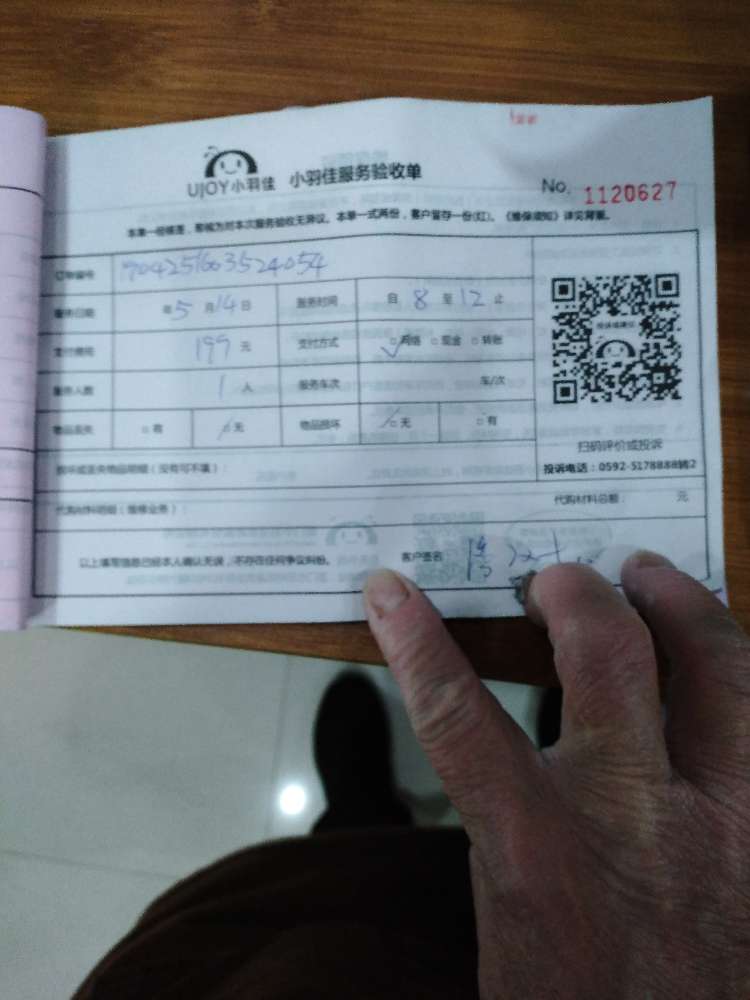 UJOY小羽佳 小羽佳服务验收单 No. 1120627
本单一经核签，即视为对本次服务验收无异议。本单一式两份，客户留存一份(红)。《维保须知》详见背面。
订单编号 1904251603524054
服务日期 年5月14日 服务时间 自8至12止
支付费用 199元 支付方式 □网络 □现金 □转账
服务人数 1人 服务车次 车/次
物品丢失 □有 □无 物品损坏 □无 □有
扫码评价或投诉
投诉电话：0592-5178888转2
损坏或丢失物品明细（没有可不填）：
代购材料明细（维修业务）： 代购材料总额： 元
以上填写信息已经本人确认无误，不存在任何争议纠纷。 客户签名